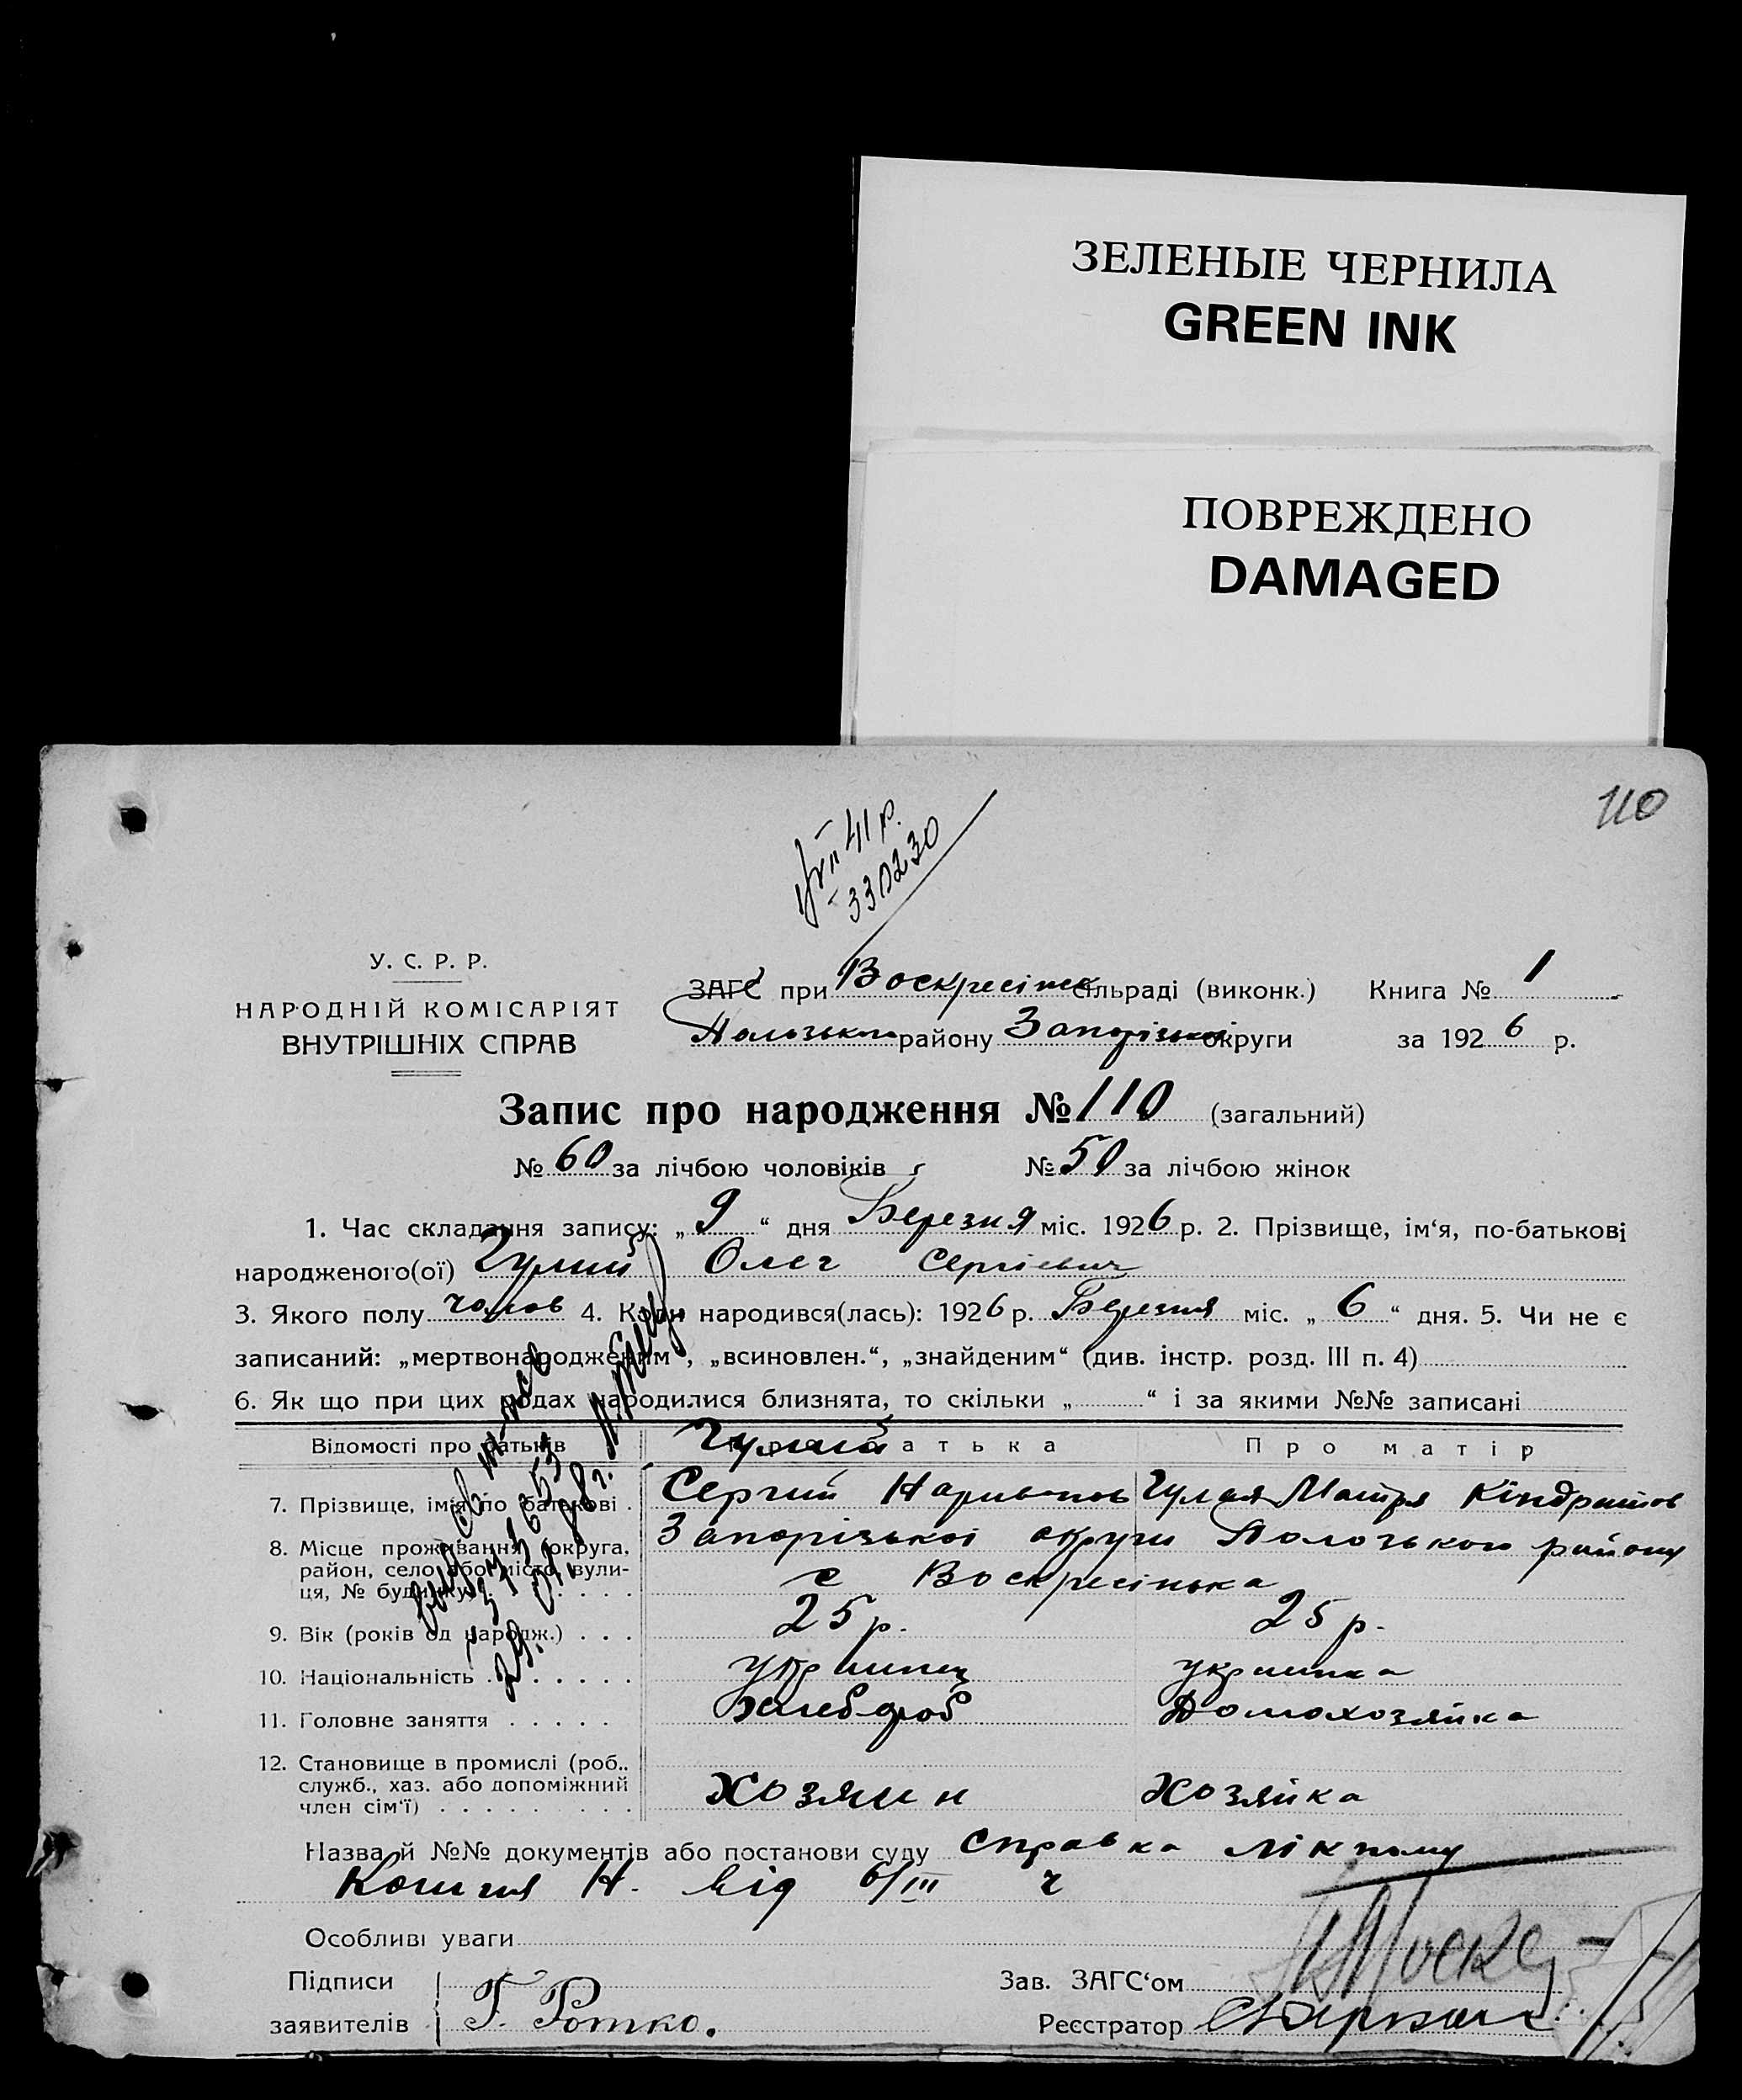 ЗЕЛЕНЫЕ ЧЕРНИЛА
GREEN INK
ПОВРЕЖДЕНО
DAMAGED
110
41 р.
330230
У. С. Р. Р.
НАРОДНІЙ КОМІСАРІЯТ
ВНУТРІШНІХ СПРАВ
ЗАГС при Воскресінск сільраді (виконк.) Книга № 1
району Запорізької округи за 1926 р.
Запис про народження № 110 (загальний)
№ 60 за лічбою чоловіків № 50 за лічбою жінок
1. Час складання запису: „9“ дня Березня міс. 1926 р. 2. Прізвище, ім‘я, по-батькові
народженого(ої) Гулий Олег Сергієвич
3. Якого полу чолов 4. Коли народився(лась): 1926 р. Березня міс. „6“ дня. 5. Чи не є
записаний: „мертвонародженим“, „всиновлен.“, „знайденим“ (див. інстр. розд. III п. 4)
6. Як що при цих родах народилися близнята, то скільки „ “ і за якими №№ записані
Відомості про батьків Гулий батька Про матір
7. Прізвище, імя по батькові . Сергий Гулая Мотря Кіндратов
8. Місце проживання: округа, Запорізької округи Пологького району
район, село або місто, вули-
ця, № будинку . . . . с Воскресінька
9. Вік (років од народж.) . . . 25 р. 25 р.
10. Національність . . . . . . українец українка
11. Головне заняття . . . . . Хлебороб Домохозяйка
12. Становище в промислі (роб.,
служб., хаз. або допоміжний
член сім‘ї) . . . . . . . . Хозяин Хозяйка
Назва й №№ документів або постанови суду справка лікпому
Н. від 6/III
Особливі уваги
Підписи Зав. ЗАГС‘ом
заявителів Г. Ротко. Реєстратор